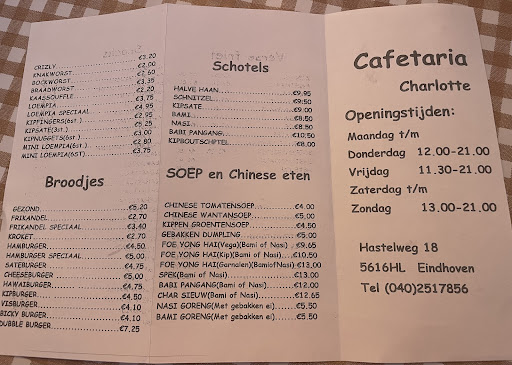 CRIZLY €3.20
KNAKWORST €2.00
BOCKWORST €2.60
BRAADWORST €3.35
KAASSOUFFLE €2.20
LOEMPIA €3.75
LOEMPIA SPECIAAL €4.95
KIPFINGERS(6st.) €2.95
KIPSATE(3st.) €5.25
KIPNUGGETS(6st.) €3.00
MINI LOEMPIA(6st.) €2.80
MINI LOEMPIA(6ST) €3.75
Broodjes
GEZOND €5.20
FRIKANDEL €2.70
FRIKANDEL SPECIAAL €3.40
KROKET €2.70
HAMBURGER €4.50
HAMBURGER SPECIAAL €5.00
SATEBURGER €4.75
CHEESEBURGER €5.00
HAWAIBURGER €4.75
KIPBURGER €4.50
VISBURGER €4.10
BICKY BURGER €4.10
DUBBLE BURGER €7.25
Schotels
HALVE HAAN €9.95
SCHNITZEL €9.50
KIPSATE €9.00
BAMI €8.50
NASI €8.50
BABI PANGANG €10.50
KIPBOUTSCHTEL €8.00
SOEP en Chinese eten
CHINESE TOMATENSOEP €4.00
CHINESE WANTANSOEP €5.00
KIPPEN GROENTENSOEP €4.50
GEBAKKEN DUMPLING €5.00
FOE YONG HAI(Vega)(Bami of Nasi) €9.65
FOE YONG HAI(Kip)(Bami of Nasi) €10.50
FOE YONG HAI(Garnalen)(BamiofNasi) €13.00
SPEK(Bami of Nasi) €13.00
BABI PANGANG(Bami of Nasi) €12.00
CHAR SIEUW(Bami of Nasi) €12.65
NASI GORENG(Met gebakken ei) €5.50
BAMI GORENG(Met gebakken ei) €5.50
Cafetaria
Charlotte
Openingstijden:
Maandag t/m
Donderdag 12.00-21.00
Vrijdag 11.30-21.00
Zaterdag t/m
Zondag 13.00-21.00
Hastelweg 18
5616HL Eindhoven
Tel (040)2517856